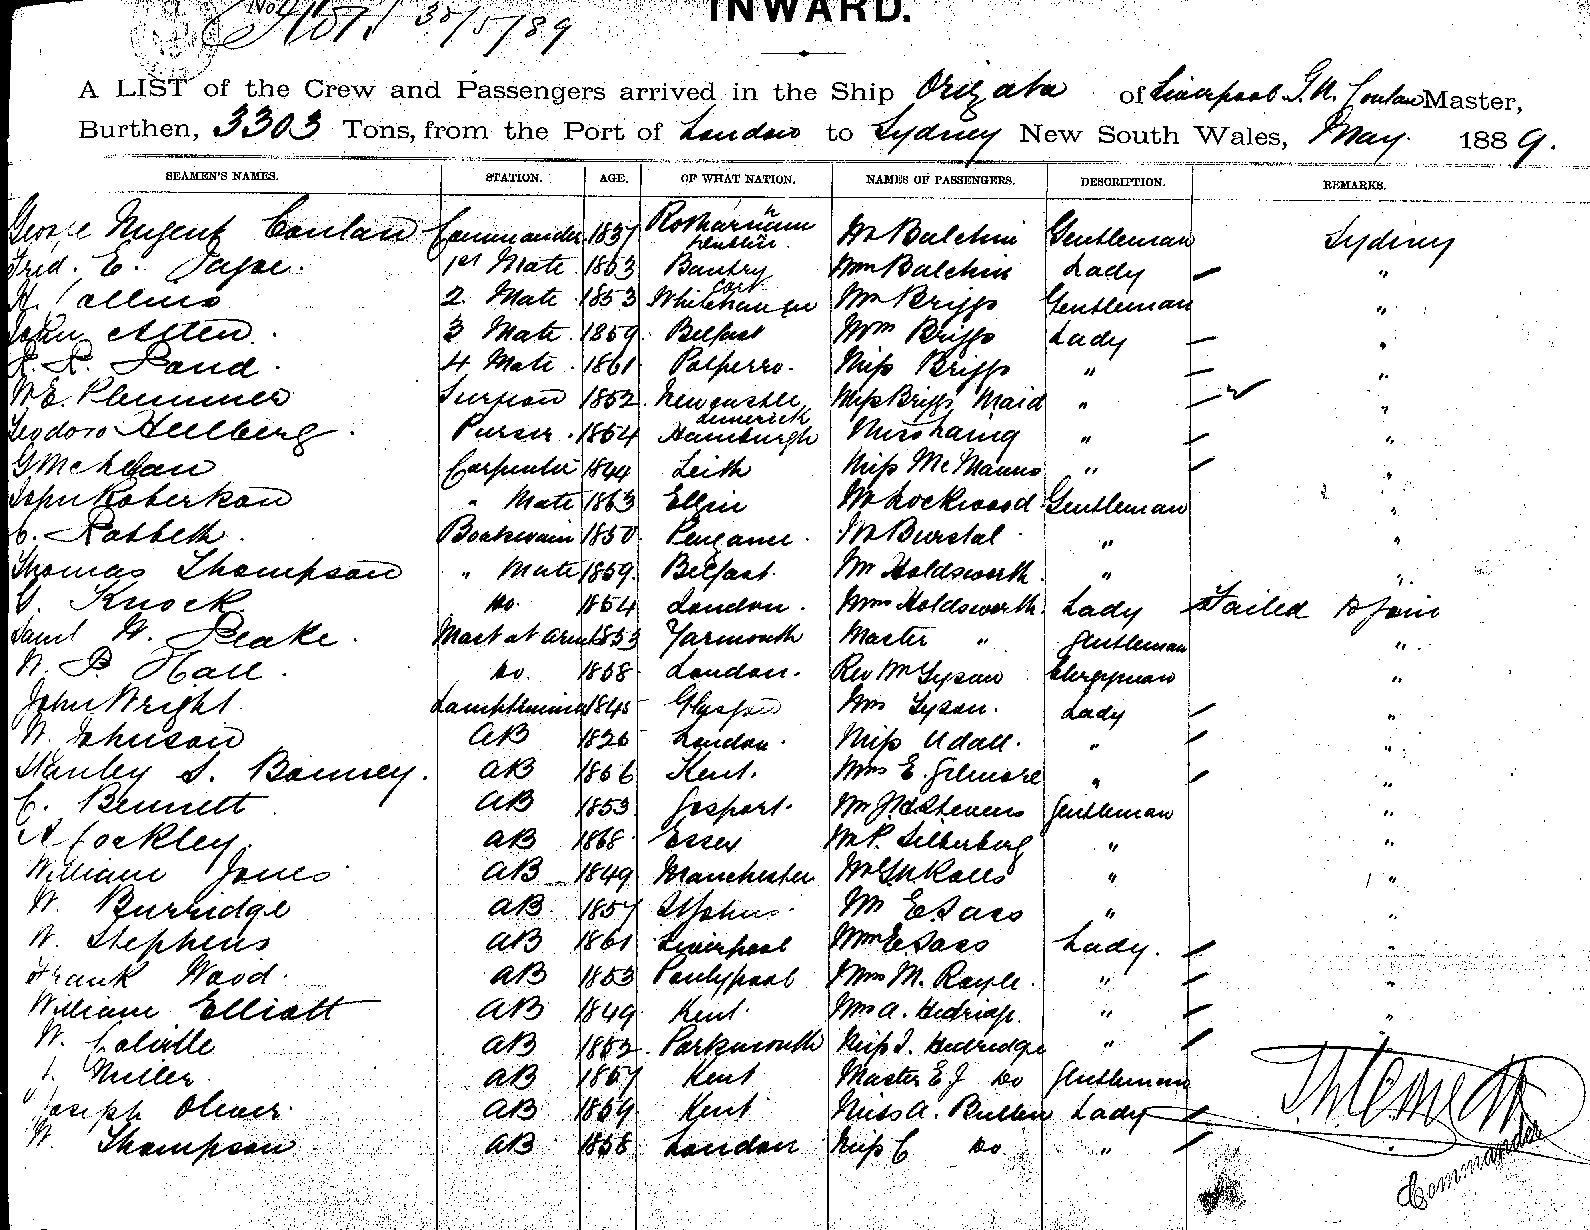 30/5/89
INWARD.
A LIST of the Crew and Passengers arrived in the Ship Orizaba of Liverpool G. N. Conlan Master,
Burthen, 3303 Tons, from the Port of London to Sydney New South Wales, May 1889.
SEAMEN'S NAMES. STATION. AGE. OF WHAT NATION. NAMES OF PASSENGERS. DESCRIPTION. REMARKS.
George Nugent Conlan Commander 1837 Dublin Mr Balchin Gentleman Sydney
Fred. E. 1st Mate 1853 Bantry Cork Mrs Balchin Lady "
H. Collins 2 Mate 1853 Whitehaven Mr Briggs Gentleman "
John Allen 3 Mate 1859 Belfast Mrs Briggs Lady "
Rand 4 Mate 1861 Polperro Miss Briggs " "
W. E. Plummer Surgeon 1852 Newcastle Limerick Miss Briggs Maid " "
Teodoro Heelberg Purser 1854 Hamburgh Miss Laing " "
Carpenter 1844 Leith Miss McManus " "
John Robertson " Mate 1863 Elgin Mr Lockwood Gentleman "
Boatswain 1850 Penzance Mr Burstal " "
Thomas Thompson " Mate 1859 Belfast Mr Holdsworth " "
Knock Do. 1854 London Mrs Holdsworth Lady Failed to Join
Saml H. Peake Mast at Arms 1853 Yarmouth Master " Gentleman "
W. P. Hall Do. 1858 London Rev Mr Tyson Clergyman "
John Wright Lamptrimmer 1845 Glasgow Mrs Tyson Lady "
W. Johnson AB 1826 London Miss Udall " "
Stanley S. Bonney AB 1866 Kent Mrs E. Gilmore " "
C. Bennett AB 1853 Gosport Mr Stevens Gentleman "
A Cockley AB 1868 Essex Mr P. Silberberg " "
William Jones AB 1849 Manchester Mr " "
W. Burridge AB 1857 St Johns Mr E Sass " "
W. Stephens AB 1861 Liverpool Mrs E Sass Lady "
Frank Wood AB 1853 Pontypool Mrs M. Royle " "
William Elliott AB 1849 Kent Mrs A. " "
W. Colville AB 1852 Portsmouth Miss J. Hedridge " "
Miller AB 1867 Kent Master E J Do Gentleman
Joseph Oliver AB 1859 Kent Miss A. Bullen Lady
W Thompson AB 1858 London Miss C Do "
Commander